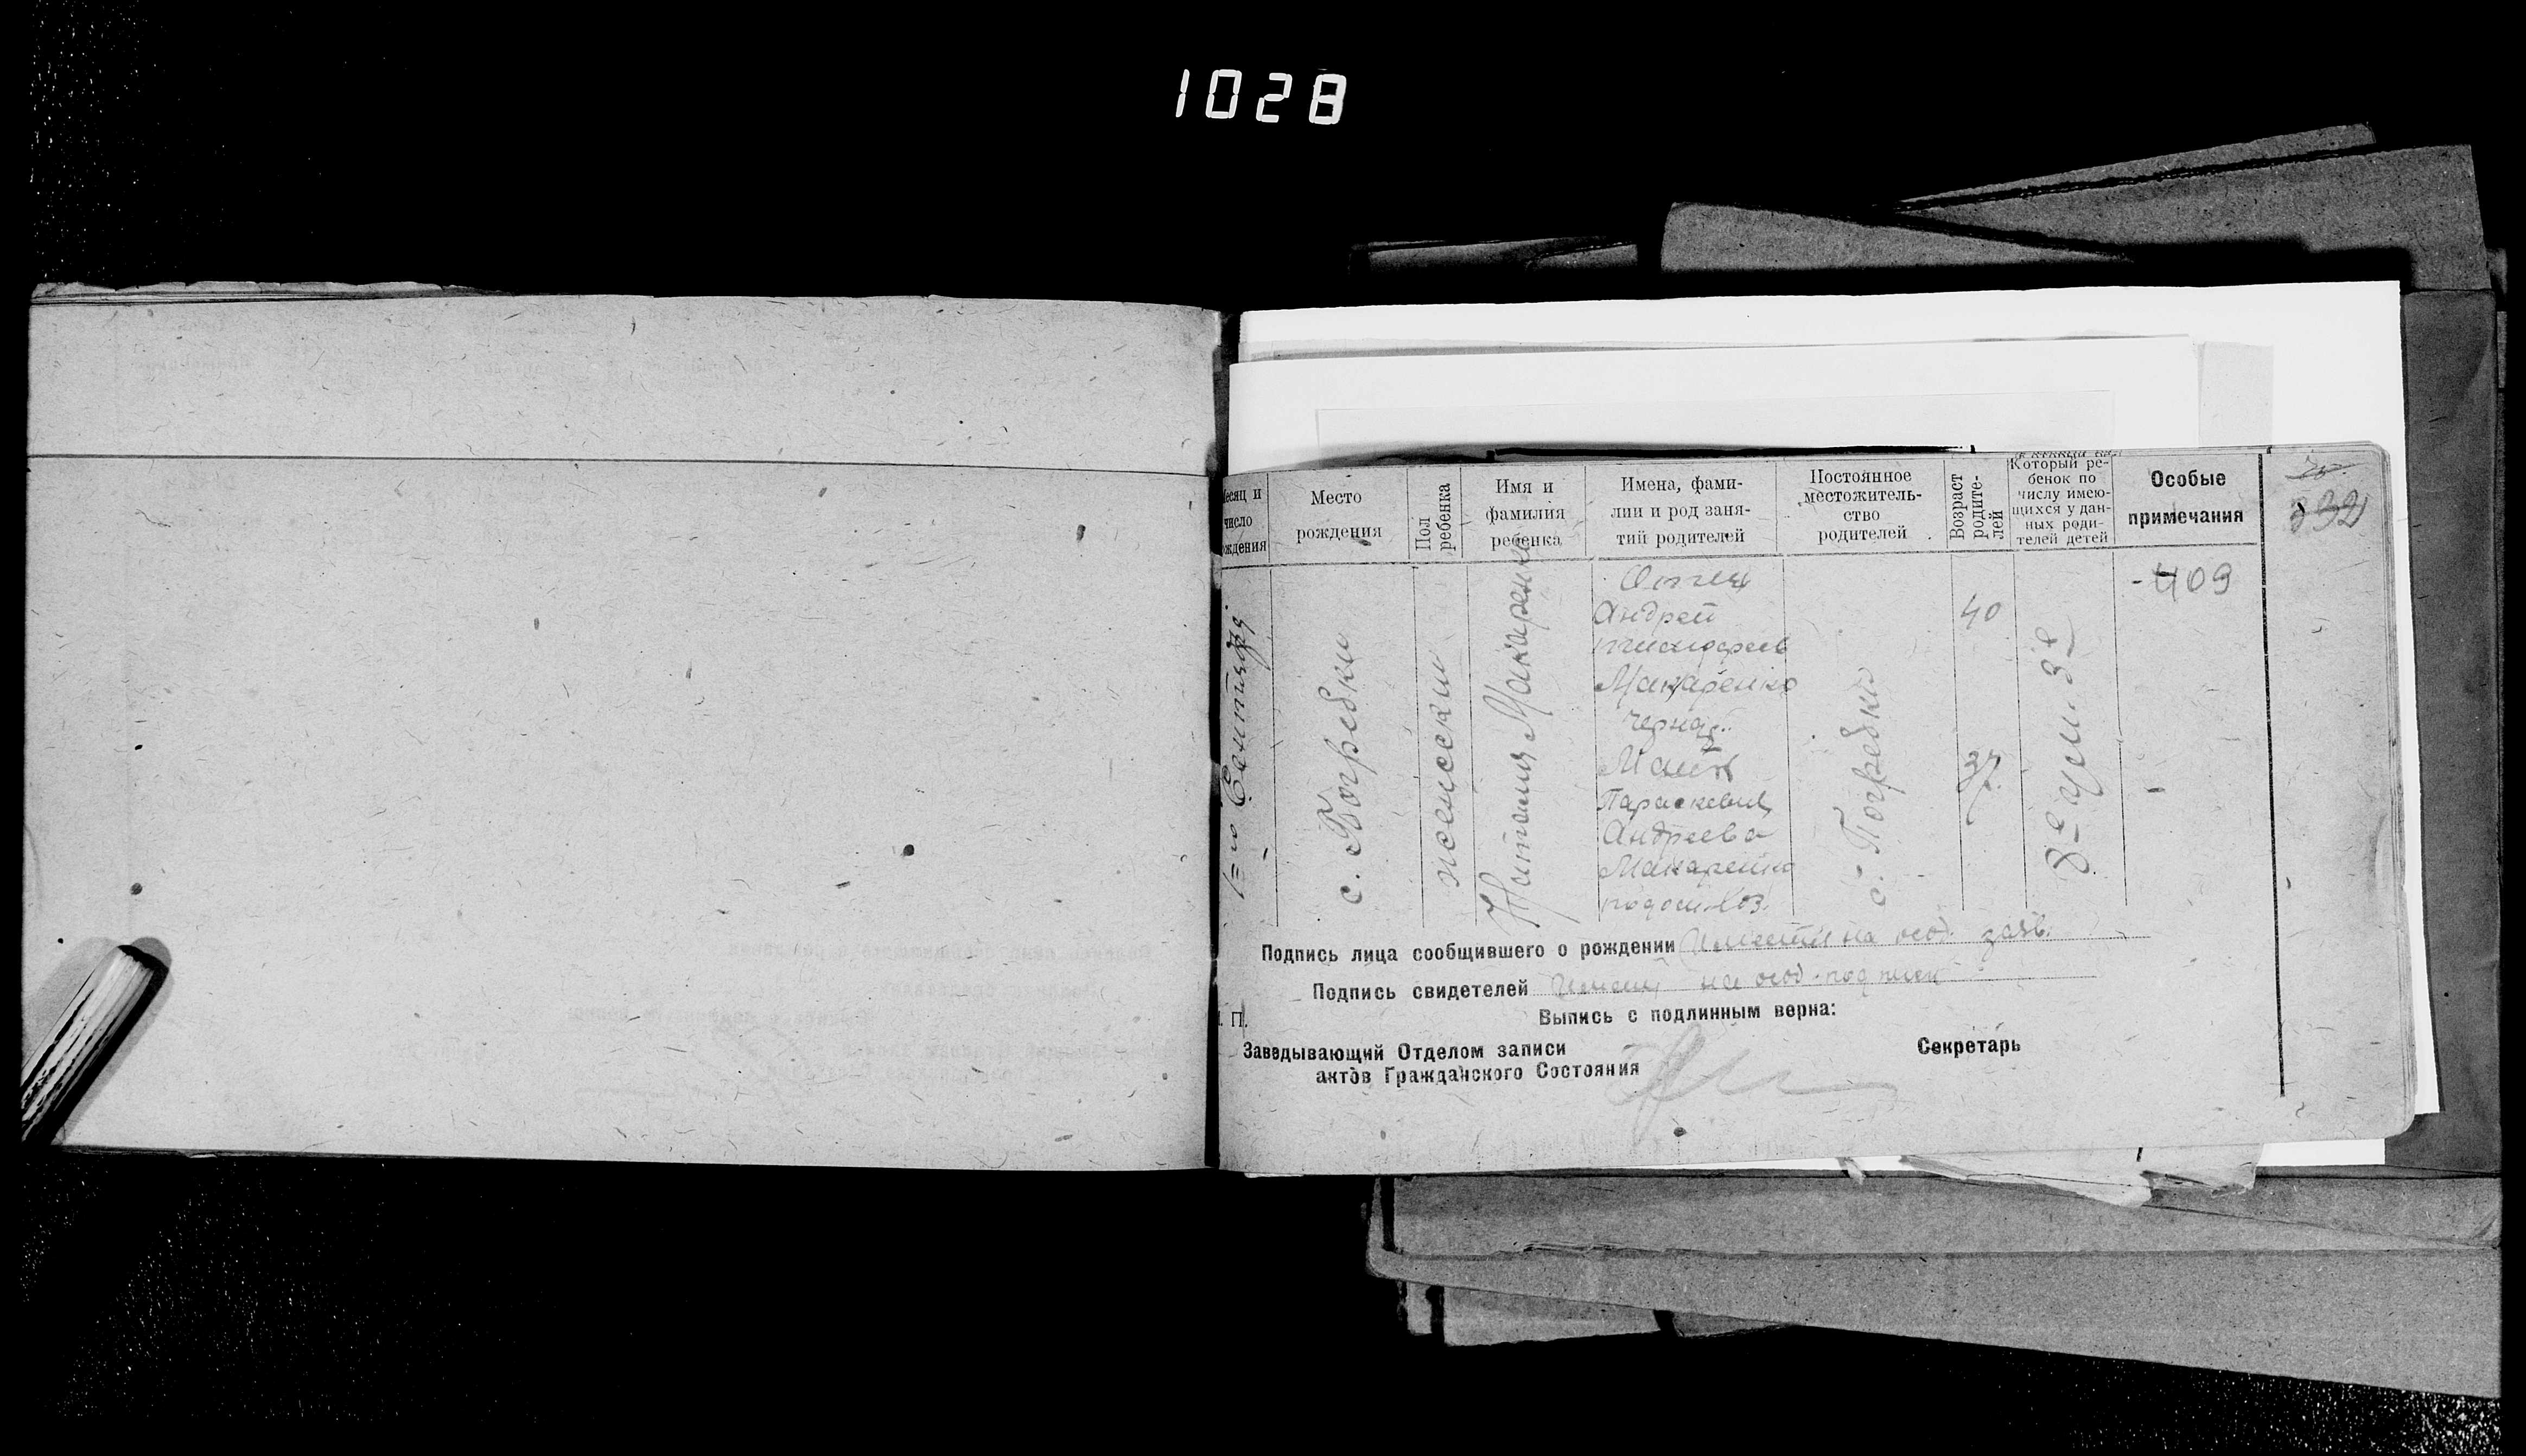 1028
Месяц и число рождения
Место рождения
Пол ребенка
Имя и фамилия ребенка
Имена, фами-
лии и род заня-
тий родителей
Постоянное
местожитель-
ство
родителей
Возраст родите-лей
Который ре-
бенок по
числу имею-
щихся у дан-
ных роди-
телей детей
Особые
примечания
392
Сентября
с. Погребки
женский
Макаренко
Отец
Андрей
Макаренко
Мать
Параскевия
Андреева
Макаренко
с. Погребки
40
37
409
Подпись лица сообщившего о рождении
Подпись свидетелей
П.
Выпись с подлинным верна:
Заведывающий Отделом записи
актов Гражданского Состояния
Секретарь